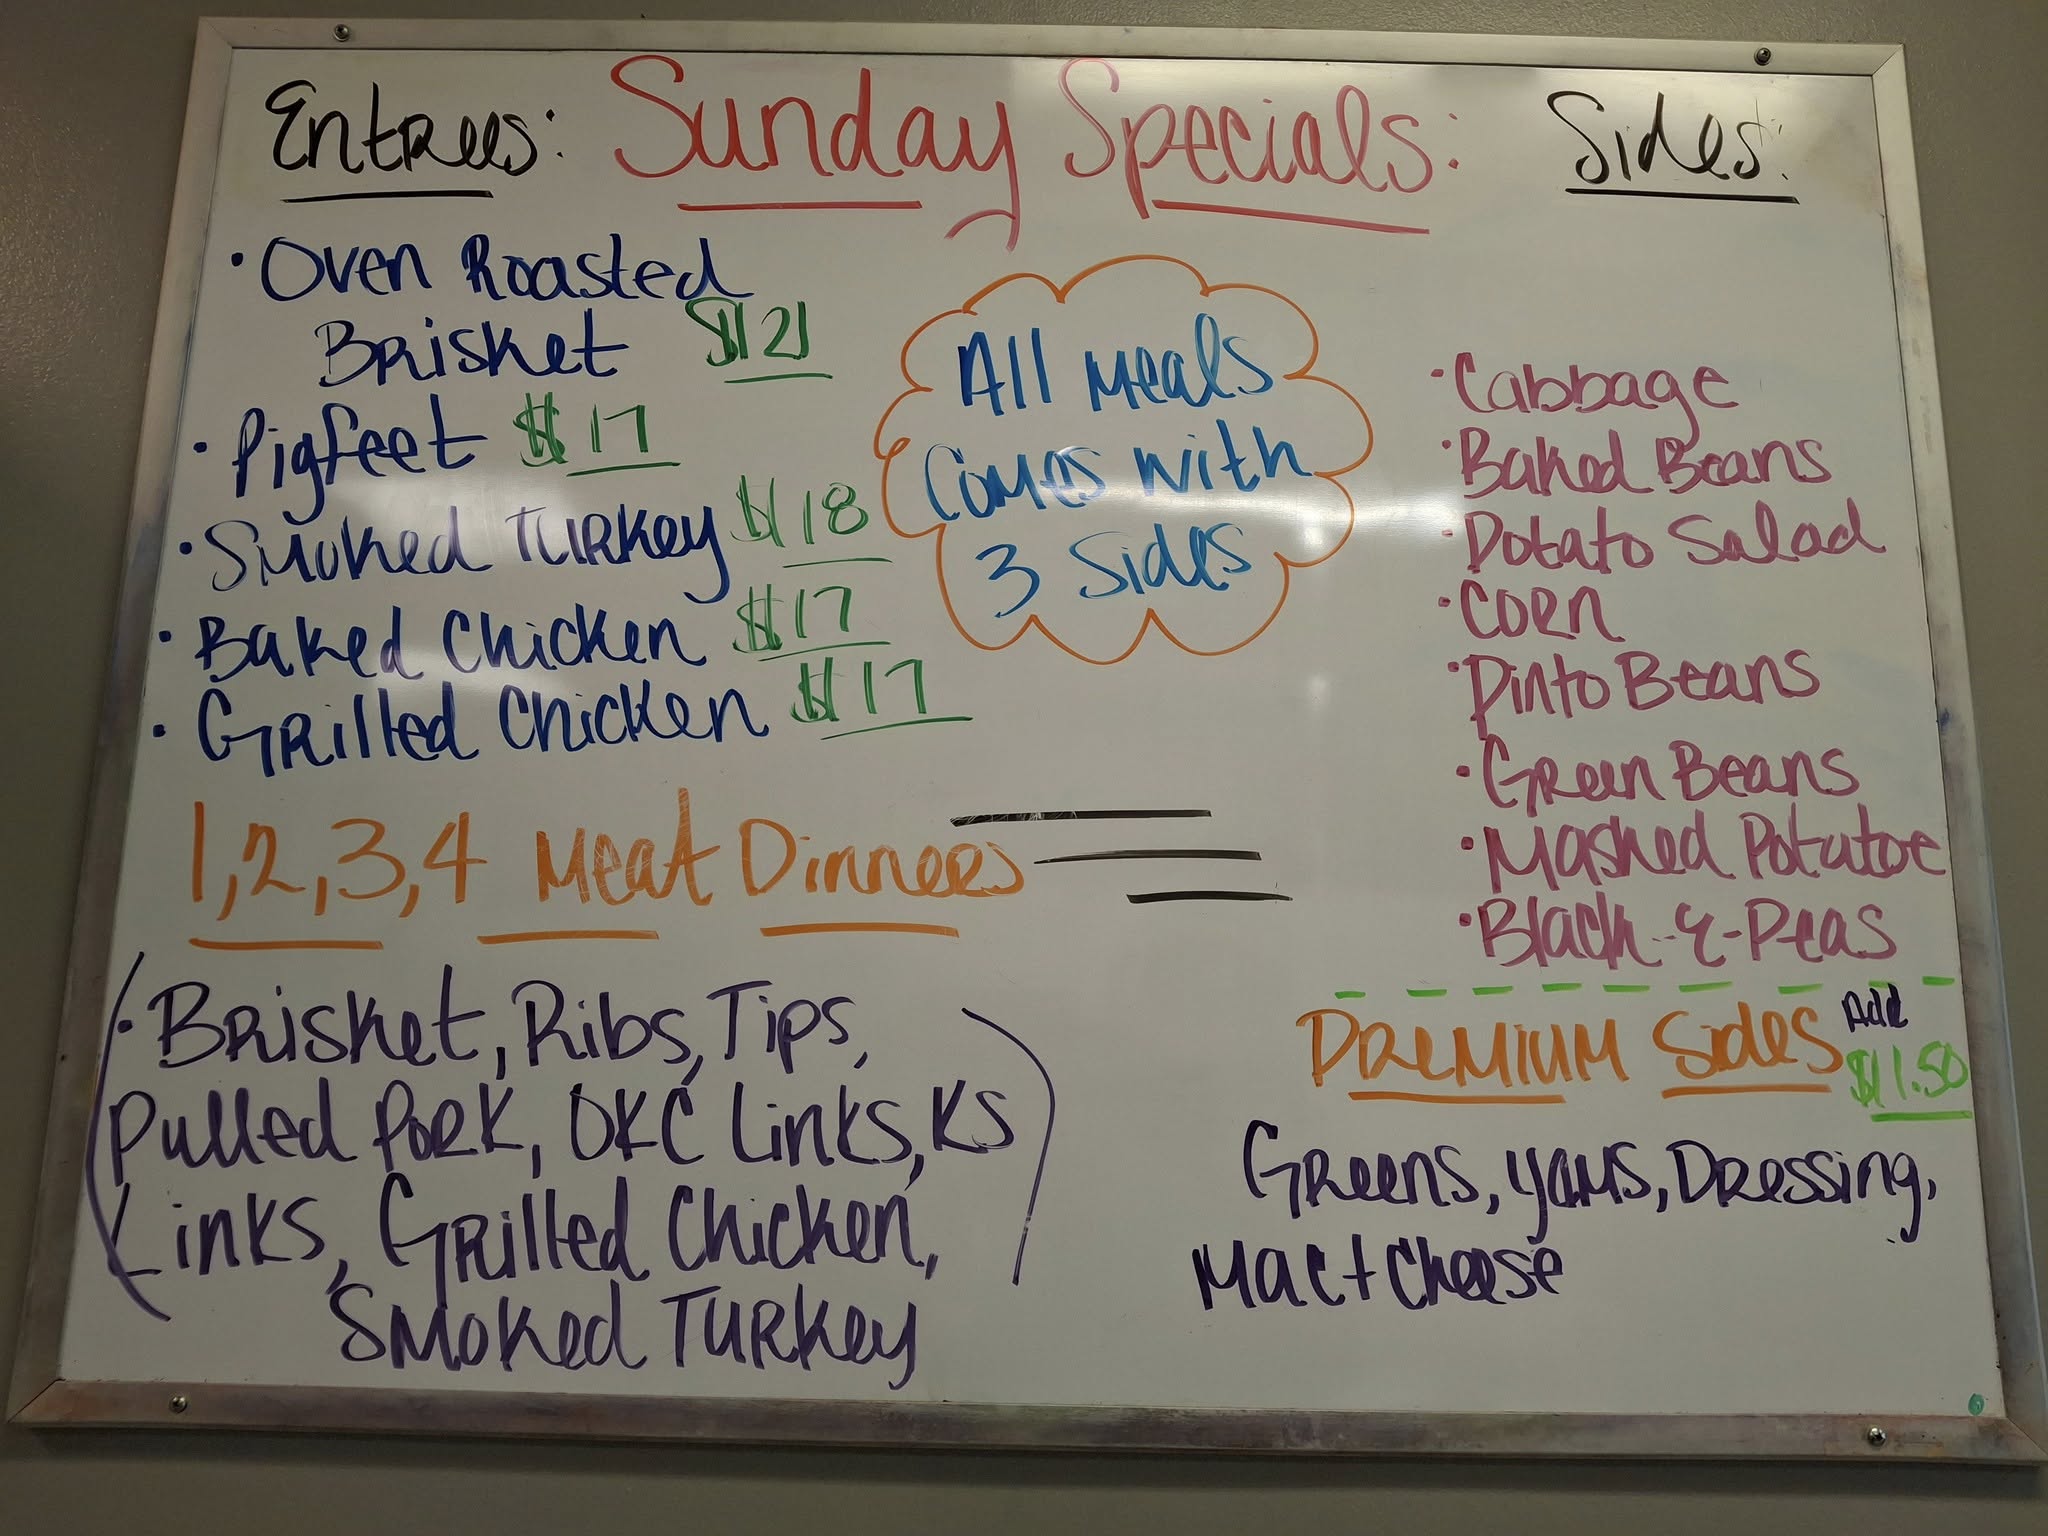 Entrees:
Sunday Specials:
Sides:
• Oven Roasted
Brisket $21
• Pigfeet $17
• Smoked Turkey $18
• Baked Chicken $17
• Grilled Chicken $17
All Meals
Comes with
3 Sides
1,2,3,4 Meat Dinners
(• Brisket, Ribs, Tips,
Pulled Pork, OKC Links, KS
Links, Grilled Chicken,)
Smoked Turkey
• Cabbage
• Baked Beans
• Potato Salad
• Corn
• Pinto Beans
• Green Beans
• Mashed Potatoe
• Black-e-Peas
Premium Sides Add
$1.50
Greens, Yams, Dressing,
Mac + Cheese